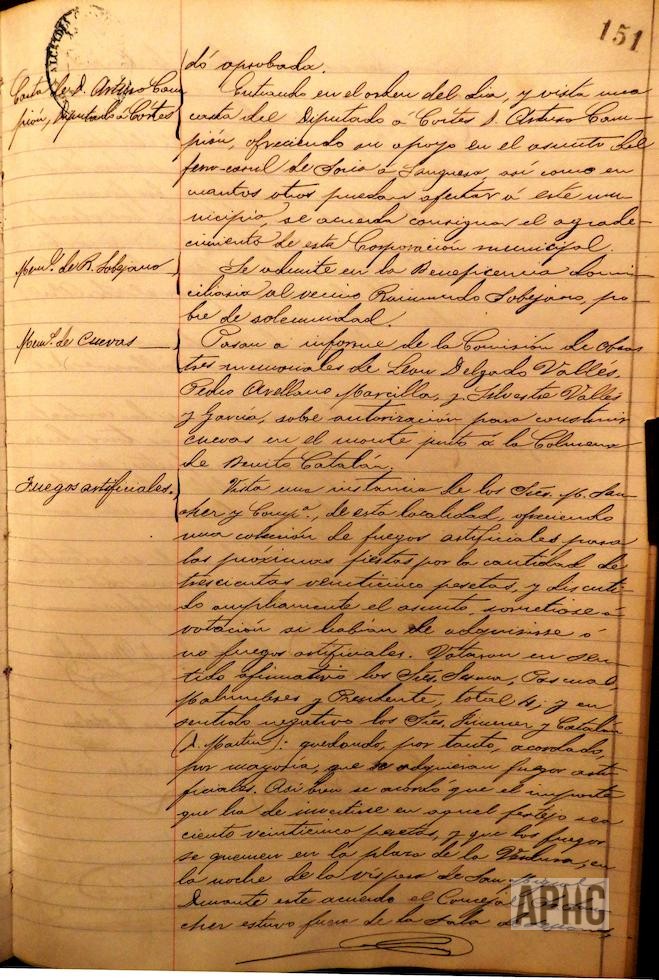 151
ALCALDIA
dó aprobada.
Carta de D. Arturo Cam
pión, Diputado á Cortes
Entrando en el orden del dia, y vista una
carta del Diputado á Cortes D. Arturo Cam-
pión, ofreciendo su apoyo en el asunto del
ferro-carril de Soria á Sangüesa, así como en
cuantos otros puedan afectar á este mu-
nicipio se acuerda consignar el agrade-
cimiento de esta Corporación municipal.
Meml. de R. Sobejano
Se admite en la Beneficencia domi-
ciliaria al vecino Raimundo Sobejano, po-
bre de solemnidad.
Meml. de Cuevas
Pasan a informe de la Comisión de obras
tres memoriales de Leon Delgado Vallés,
Pedro Arellano Marcilla, y Silvestre Vallés
y García, sobre autorización para construir
cuevas en el monte junto á la Colmena
de Benito Catalán.
Fuegos artificiales.
Vista una instancia de los Sres. M. San-
chez y Compª., de esta localidad, ofreciendo
una colección de fuegos artificiales para
las próximas fiestas por la cantidad de
trescientas veinticinco pesetas, y discuti-
do ampliamente el asunto, sometiose á
votación si habían de adquirirse ó
no fuegos artificiales. Votaron en sen-
tido afirmativo los Sres. Pascual,
Malumbres y Presidente, total 4; y en
sentido negativo los Sres. Jimenez y Catalán
(D. Martin): quedando, por tanto, acordado,
por mayoría, que se adquieran fuegos arti-
ficiales. Asi bien se acordó que el importe
que ha de invertirse en aquel festejo sea
ciento veinticinco pesetas, y que los fuegos
se quemen en la plaza de la Verdura, en
la noche de la vispera de San
Durante este acuerdo el Concejal
chez estuvo fuera de la Sala
APHC